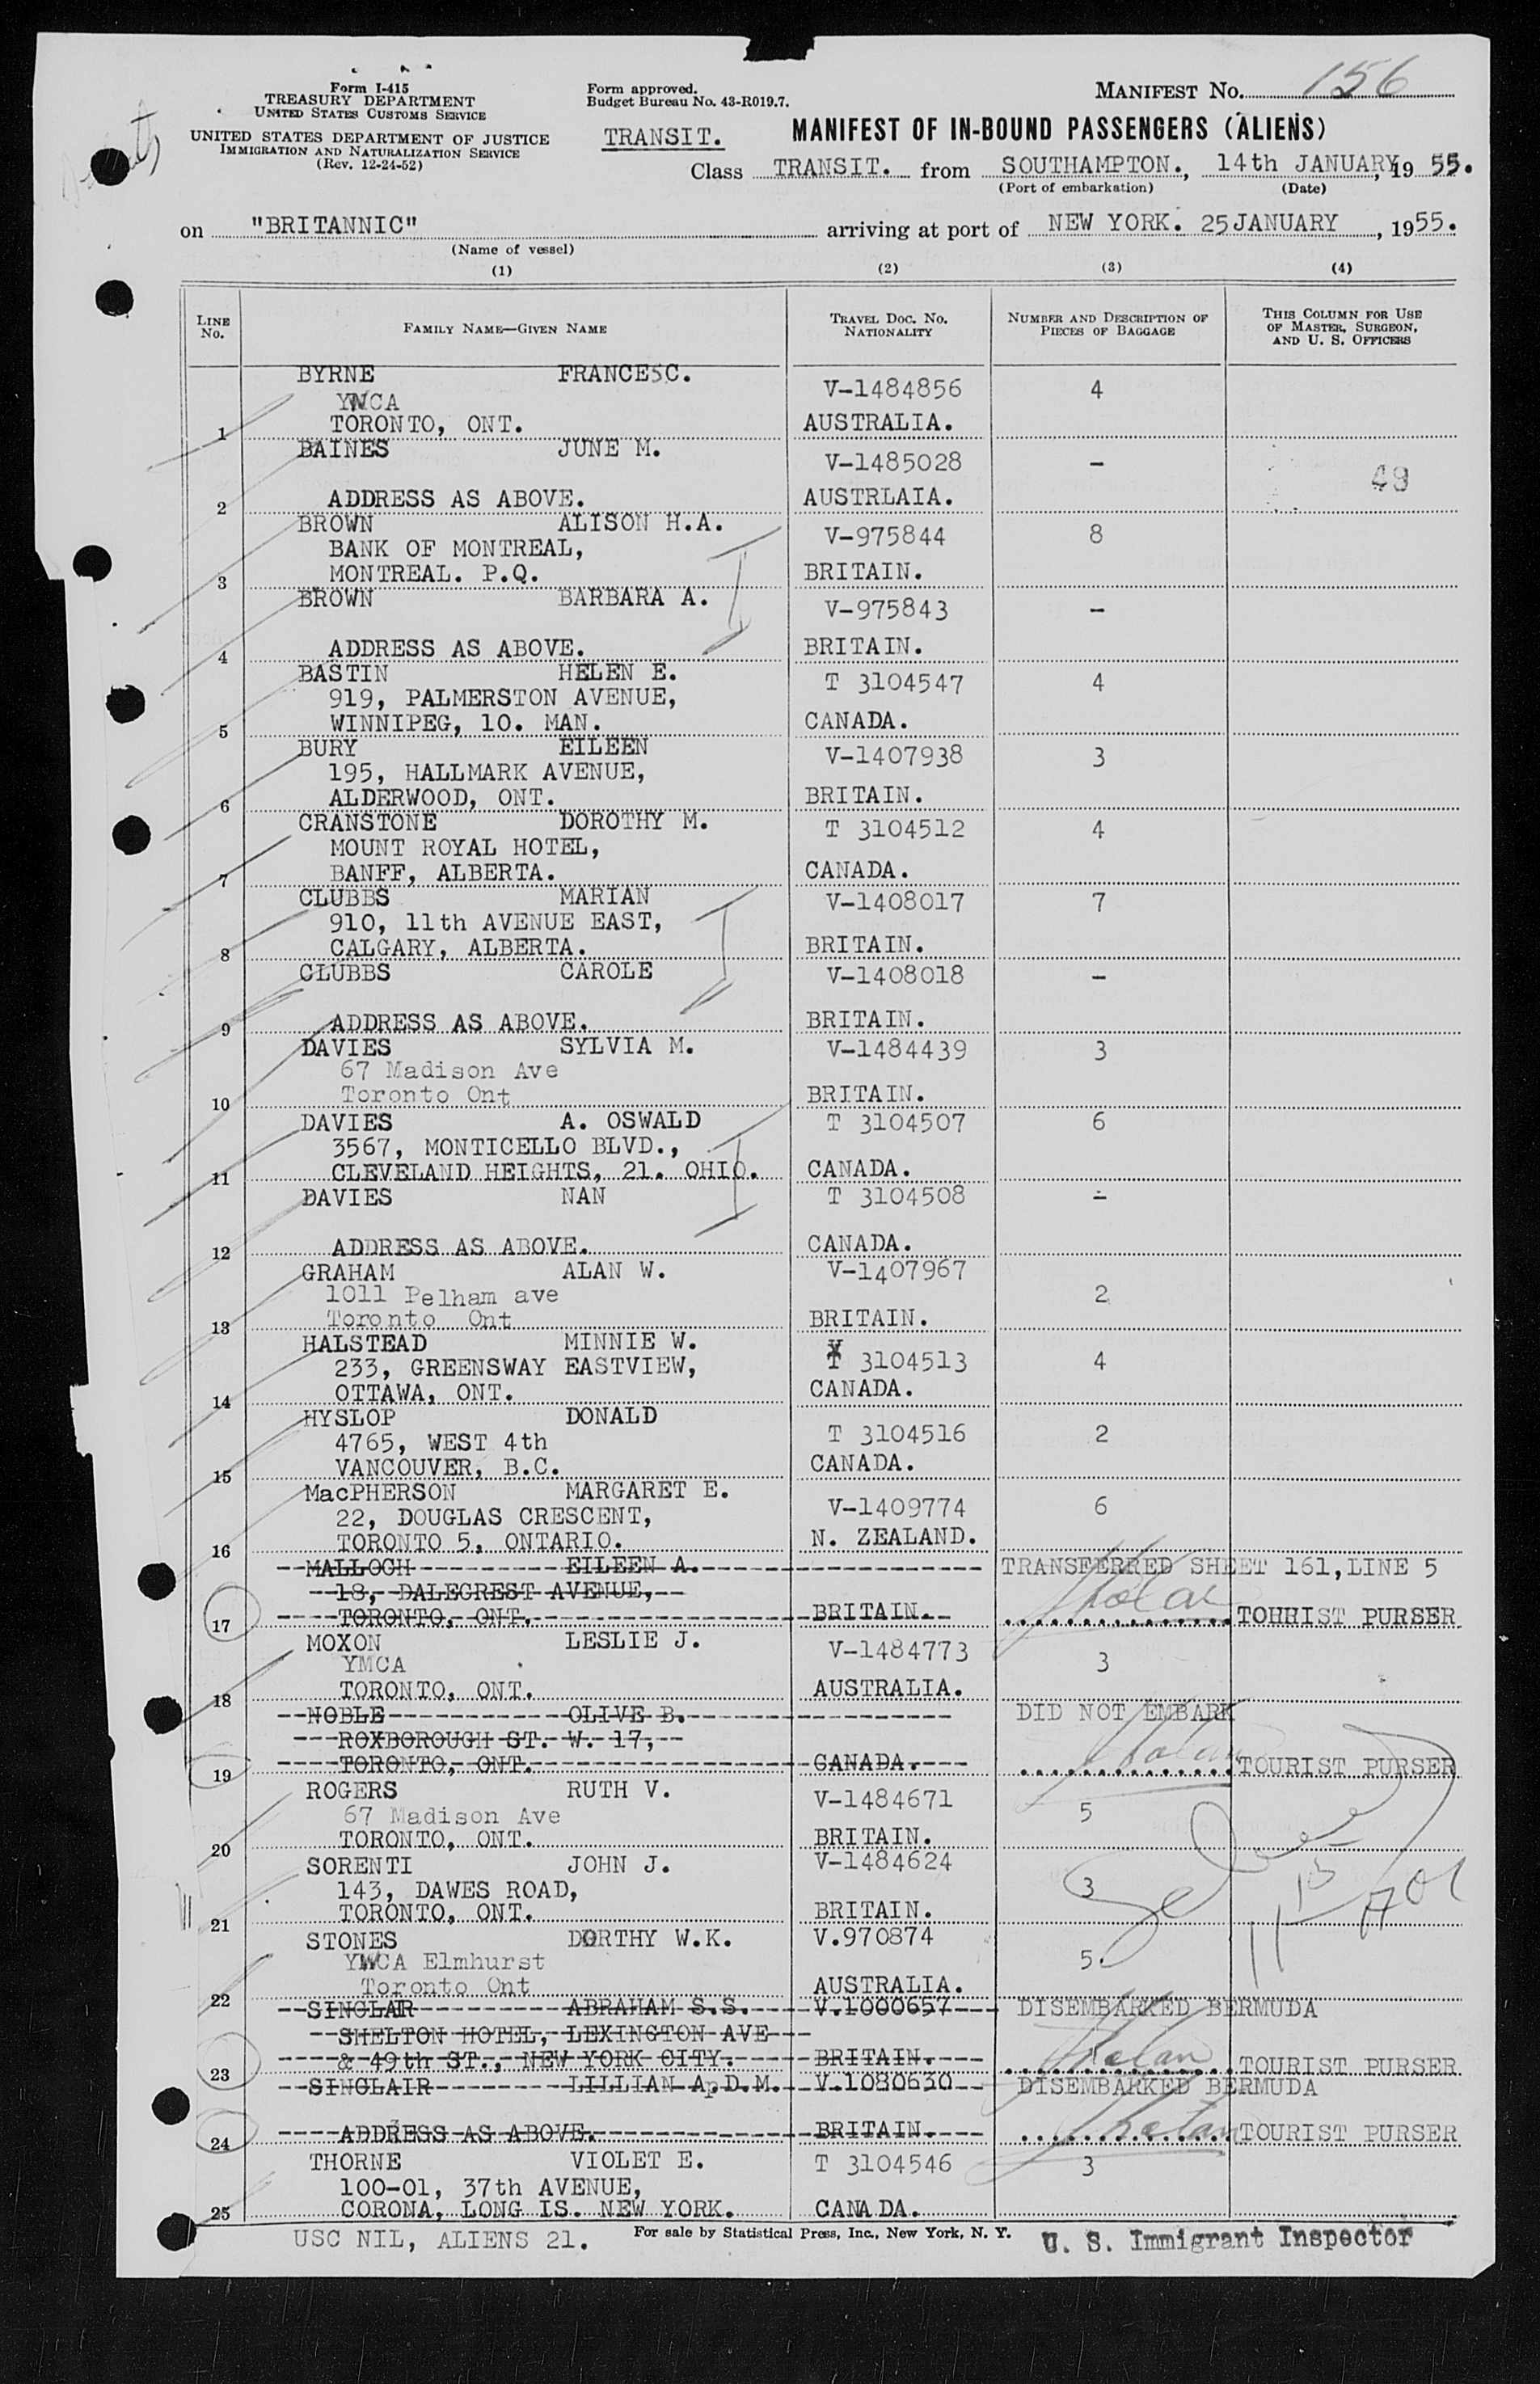 Form I-415
TREASURY DEPARTMENT
UNITED STATES CUSTOMS SERVICE
UNITED STATES DEPARTMENT OF JUSTICE
IMMIGRATION AND NATURALIZATION SERVICE
(Rev. 12-24-52)
Form approved.
Budget Bureau No. 43-R019.7.
MANIFEST No. 156
TRANSIT. MANIFEST OF IN-BOUND PASSENGERS (ALIENS)
Class TRANSIT. from SOUTHAMPTON., 14th JANUARY, 19 55.
(Port of embarkation) (Date)
on "BRITANNIC" arriving at port of NEW YORK. 25 JANUARY, 1955.
(Name of vessel)
(1) (2) (3) (4)
LINE No. FAMILY NAME—GIVEN NAME TRAVEL DOC. NO. NATIONALITY NUMBER AND DESCRIPTION OF PIECES OF BAGGAGE THIS COLUMN FOR USE OF MASTER, SURGEON, AND U. S. OFFICERS
BYRNE FRANCESC. V-1484856 4
YWCA
1 TORONTO, ONT. AUSTRALIA.
BAINES JUNE M. V-1485028 - 49
2 ADDRESS AS ABOVE. AUSTRLAIA.
BROWN ALISON H.A. V-975844 8
BANK OF MONTREAL,
3 MONTREAL. P.Q. BRITAIN.
BROWN BARBARA A. V-975843 -
4 ADDRESS AS ABOVE. BRITAIN.
BASTIN HELEN E. T 3104547 4
919, PALMERSTON AVENUE,
5 WINNIPEG, 10. MAN. CANADA.
BURY EILEEN V-1407938 3
195, HALLMARK AVENUE,
6 ALDERWOOD, ONT. BRITAIN.
CRANSTONE DOROTHY M. T 3104512 4
MOUNT ROYAL HOTEL,
7 BANFF, ALBERTA. CANADA.
CLUBBS MARIAN V-1408017 7
910, 11th AVENUE EAST,
8 CALGARY, ALBERTA. BRITAIN.
CLUBBS CAROLE V-1408018 -
9 ADDRESS AS ABOVE. BRITAIN.
DAVIES SYLVIA M. V-1484439 3
67 Madison Ave
10 Toronto Ont BRITAIN.
DAVIES A. OSWALD T 3104507 6
3567, MONTICELLO BLVD.,
11 CLEVELAND HEIGHTS, 21. OHIO. CANADA.
DAVIES NAN T 3104508 -
12 ADDRESS AS ABOVE. CANADA.
GRAHAM ALAN W. V-1407967 2
1011 Pelham ave
13 Toronto Ont BRITAIN.
HALSTEAD MINNIE W. T 3104513 4
233, GREENSWAY EASTVIEW,
14 OTTAWA, ONT. CANADA.
HYSLOP DONALD T 3104516 2
4765, WEST 4th
15 VANCOUVER, B.C. CANADA.
MacPHERSON MARGARET E. V-1409774 6
22, DOUGLAS CRESCENT,
16 TORONTO 5, ONTARIO. N. ZEALAND.
MALLOCH EILEEN A. TRANSFERRED SHEET 161, LINE 5
18, DALEGREST AVENUE,
17 TORONTO, ONT. BRITAIN. TOHRIST PURSER
MOXON LESLIE J. V-1484773 3
YMCA
18 TORONTO, ONT. AUSTRALIA.
NOBLE OLIVE B. DID NOT EMBARK
ROXBOROUGH ST. W. 17,
19 TORONTO, ONT. CANADA. TOURIST PURSER
ROGERS RUTH V. V-1484671 5
67 Madison Ave
20 TORONTO, ONT. BRITAIN.
SORENTI JOHN J. V-1484624 3
143, DAWES ROAD,
21 TORONTO, ONT. BRITAIN.
STONES DORTHY W.K. V.970874 5.
YWCA Elmhurst
22 Toronto Ont AUSTRALIA.
SINCLAIR ABRAHAM S.S. V.1000657 DISEMBARKED BERMUDA
SHELTON HOTEL, LEXINGTON AVE
23 & 49th ST., NEW YORK CITY. BRITAIN. TOURIST PURSER
SINCLAIR LILLIAN A.D.M. V.1080630 DISEMBARKED BERMUDA
24 ADDRESS AS ABOVE. BRITAIN. TOURIST PURSER
THORNE VIOLET E. T 3104546 3
100-01, 37th AVENUE,
25 CORONA, LONG IS. NEW YORK. CANADA.
USC NIL, ALIENS 21. For sale by Statistical Press, Inc., New York, N. Y. U. S. Immigrant Inspector